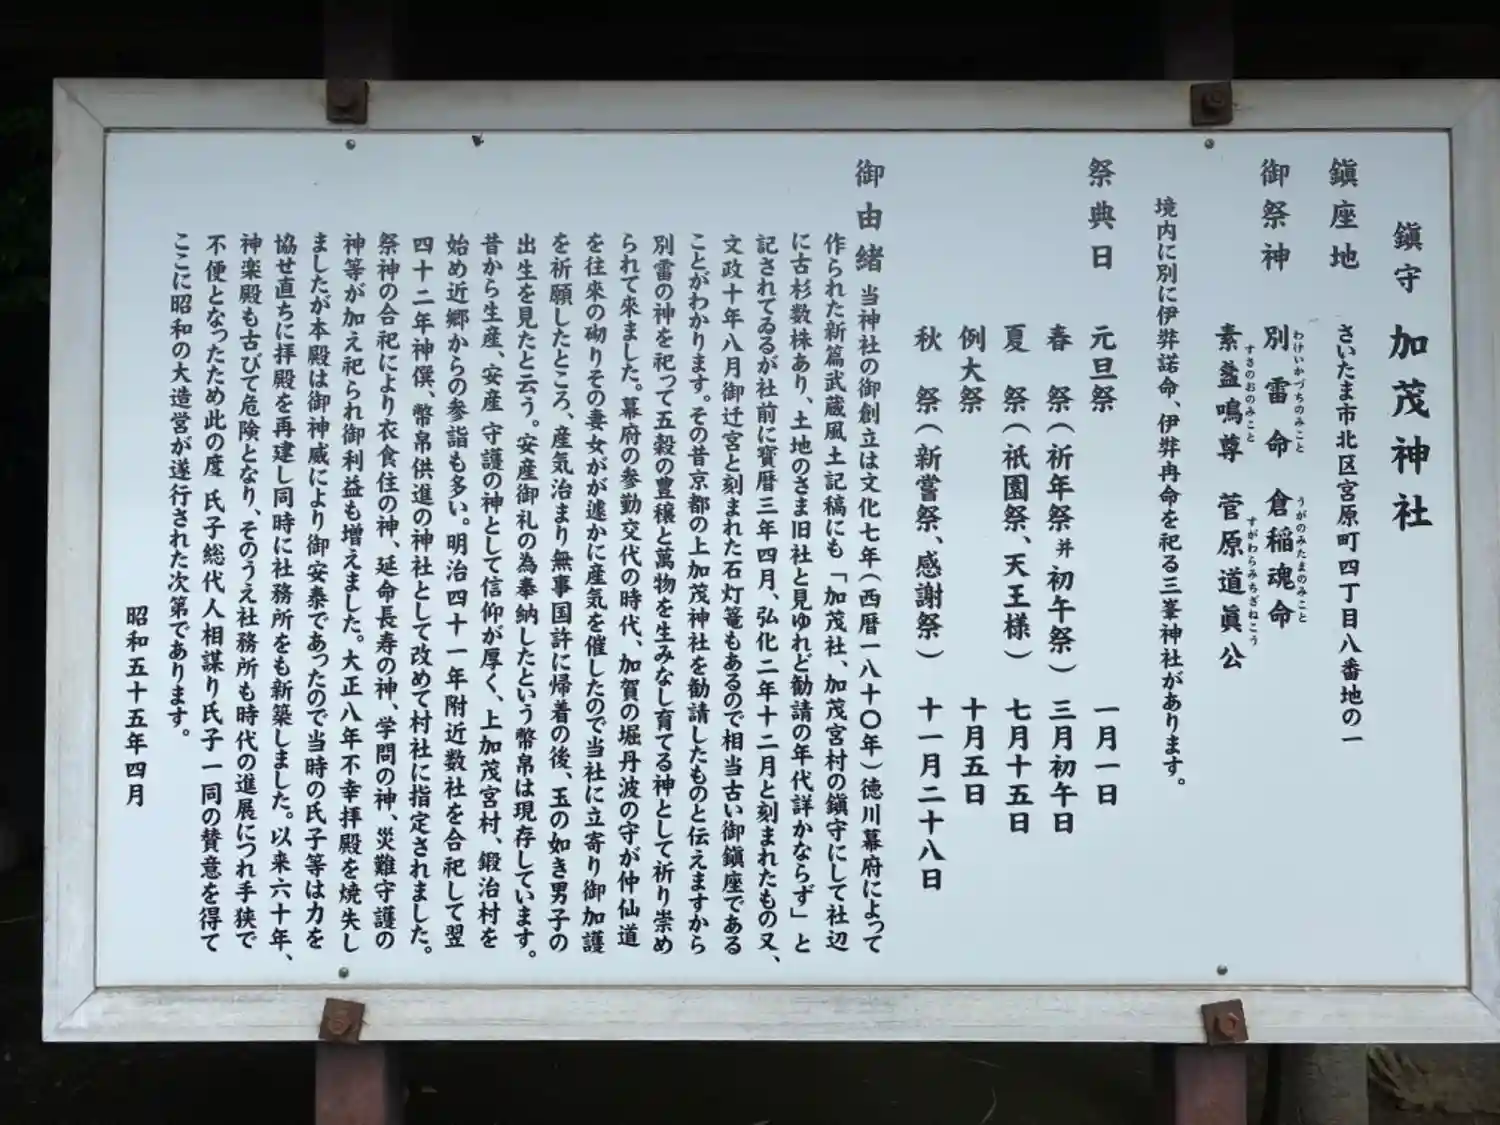 鎭守 加茂神社
鎭座地 さいたま市北区宮原町四丁目八番地の一
御祭神 別雷命 倉稲魂命
わけいかづちのみこと うがのみたまのみこと
素盞鳴尊 菅原道眞公
すさのおのみこと すがわらみちざねこう
境内に別に伊弉諾命、伊弉冉命を祀る三峯神社があります。
祭典日 元旦祭 一月一日
春祭(祈年祭并初午祭) 三月初午日
夏祭(祇園祭、天王様) 七月十五日
例大祭 十月五日
秋祭(新嘗祭、感謝祭) 十一月二十八日
御由緒 当神社の御創立は文化七年(西暦一八十〇年)徳川幕府によって
作られた新篇武蔵風土記稿にも「加茂社、加茂宮村の鎭守にして社辺
に古杉数株あり、土地のさま旧社と見ゆれど勧請の年代詳かならず」と
記されてゐるが社前に寳暦三年四月、弘化二年十二月と刻まれたもの又、
文政十年八月御迁宮と刻まれた石灯篭もあるので相当古い御鎭座である
ことがわかります。その昔京都の上加茂神社を勧請したものと伝えますから
別雷の神を祀って五穀の豊穣と萬物を生みなし育てる神として祈り崇め
られて來ました。幕府の参勤交代の時代、加賀の堀丹波の守が仲仙道
を往來の砌りその妻女がが遽かに産気を催したので当社に立寄り御加護
を祈願したところ、産気治まり無事国許に帰着の後、玉の如き男子の
出生を見たと云う。安産御礼の為奉納したという幣帛は現存しています。
昔から生産、安産守護の神として信仰が厚く、上加茂宮村、鍛治村を
始め近郷からの参詣も多い。明治四十一年附近数社を合祀して翌
四十二年神饌、幣帛供進の神社として改めて村社に指定されました。
祭神の合祀により衣食住の神、延命長寿の神、学問の神、災難守護の
神等が加え祀られ御利益も増えました。大正八年不幸拝殿を焼失し
ましたが本殿は御神威により御安泰であったので当時の氏子等は力を
協せ直ちに拝殿を再建し同時に社務所をも新築しました。以来六十年、
神楽殿も古びて危険となり、そのうえ社務所も時代の進展につれ手狭で
不便となったため此の度 氏子総代人相謀り氏子一同の賛意を得て
ここに昭和の大造営が遂行された次第であります。
昭和五十五年四月